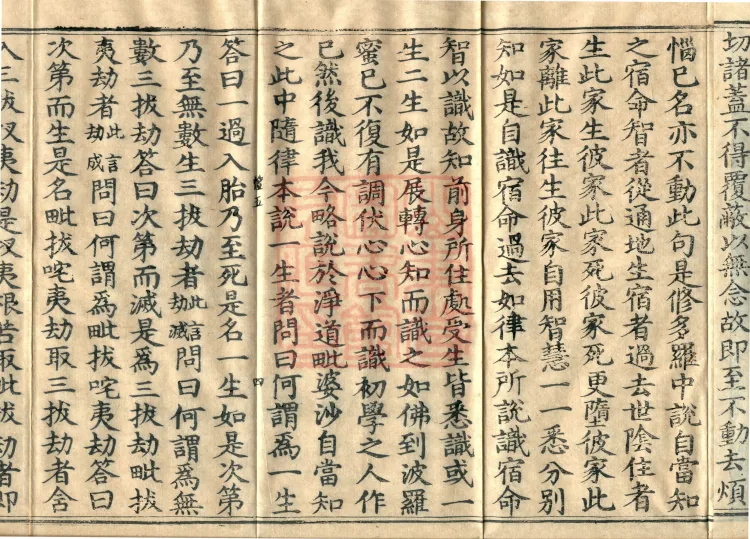 切諸蓋不得覆蔽以無念故即至不動去煩
惱已名亦不動此句是修多羅中說自當知
之宿命智者從通地生宿者過去世陰住者
生此家生彼家此家死彼家死更墮彼家此
家離此家往生彼家自用智慧一一悉分別
知如是自識宿命過去如律本所說識宿命
智以識故知前身所住處受生皆悉識或一
生二生如是展轉心知而識之如佛到波羅
蜜已不復有調伏心心下而識初學之人作
已然後識我今略說於淨道毗婆沙自當知
之此中隨律本說一生者問曰何謂為一生
答曰一過入胎乃至死是名一生如是次第
乃至無數生三拔劫者此言劫滅問曰何謂為無
數三拔劫答曰次第而滅是為三拔劫毗拔
夷劫者此言劫成問曰何謂為毗拔咤夷劫答曰
次第而生是名毗拔咤夷劫取三拔劫者含
入三拔
夷劫是
夷
取此拔劫者即
四